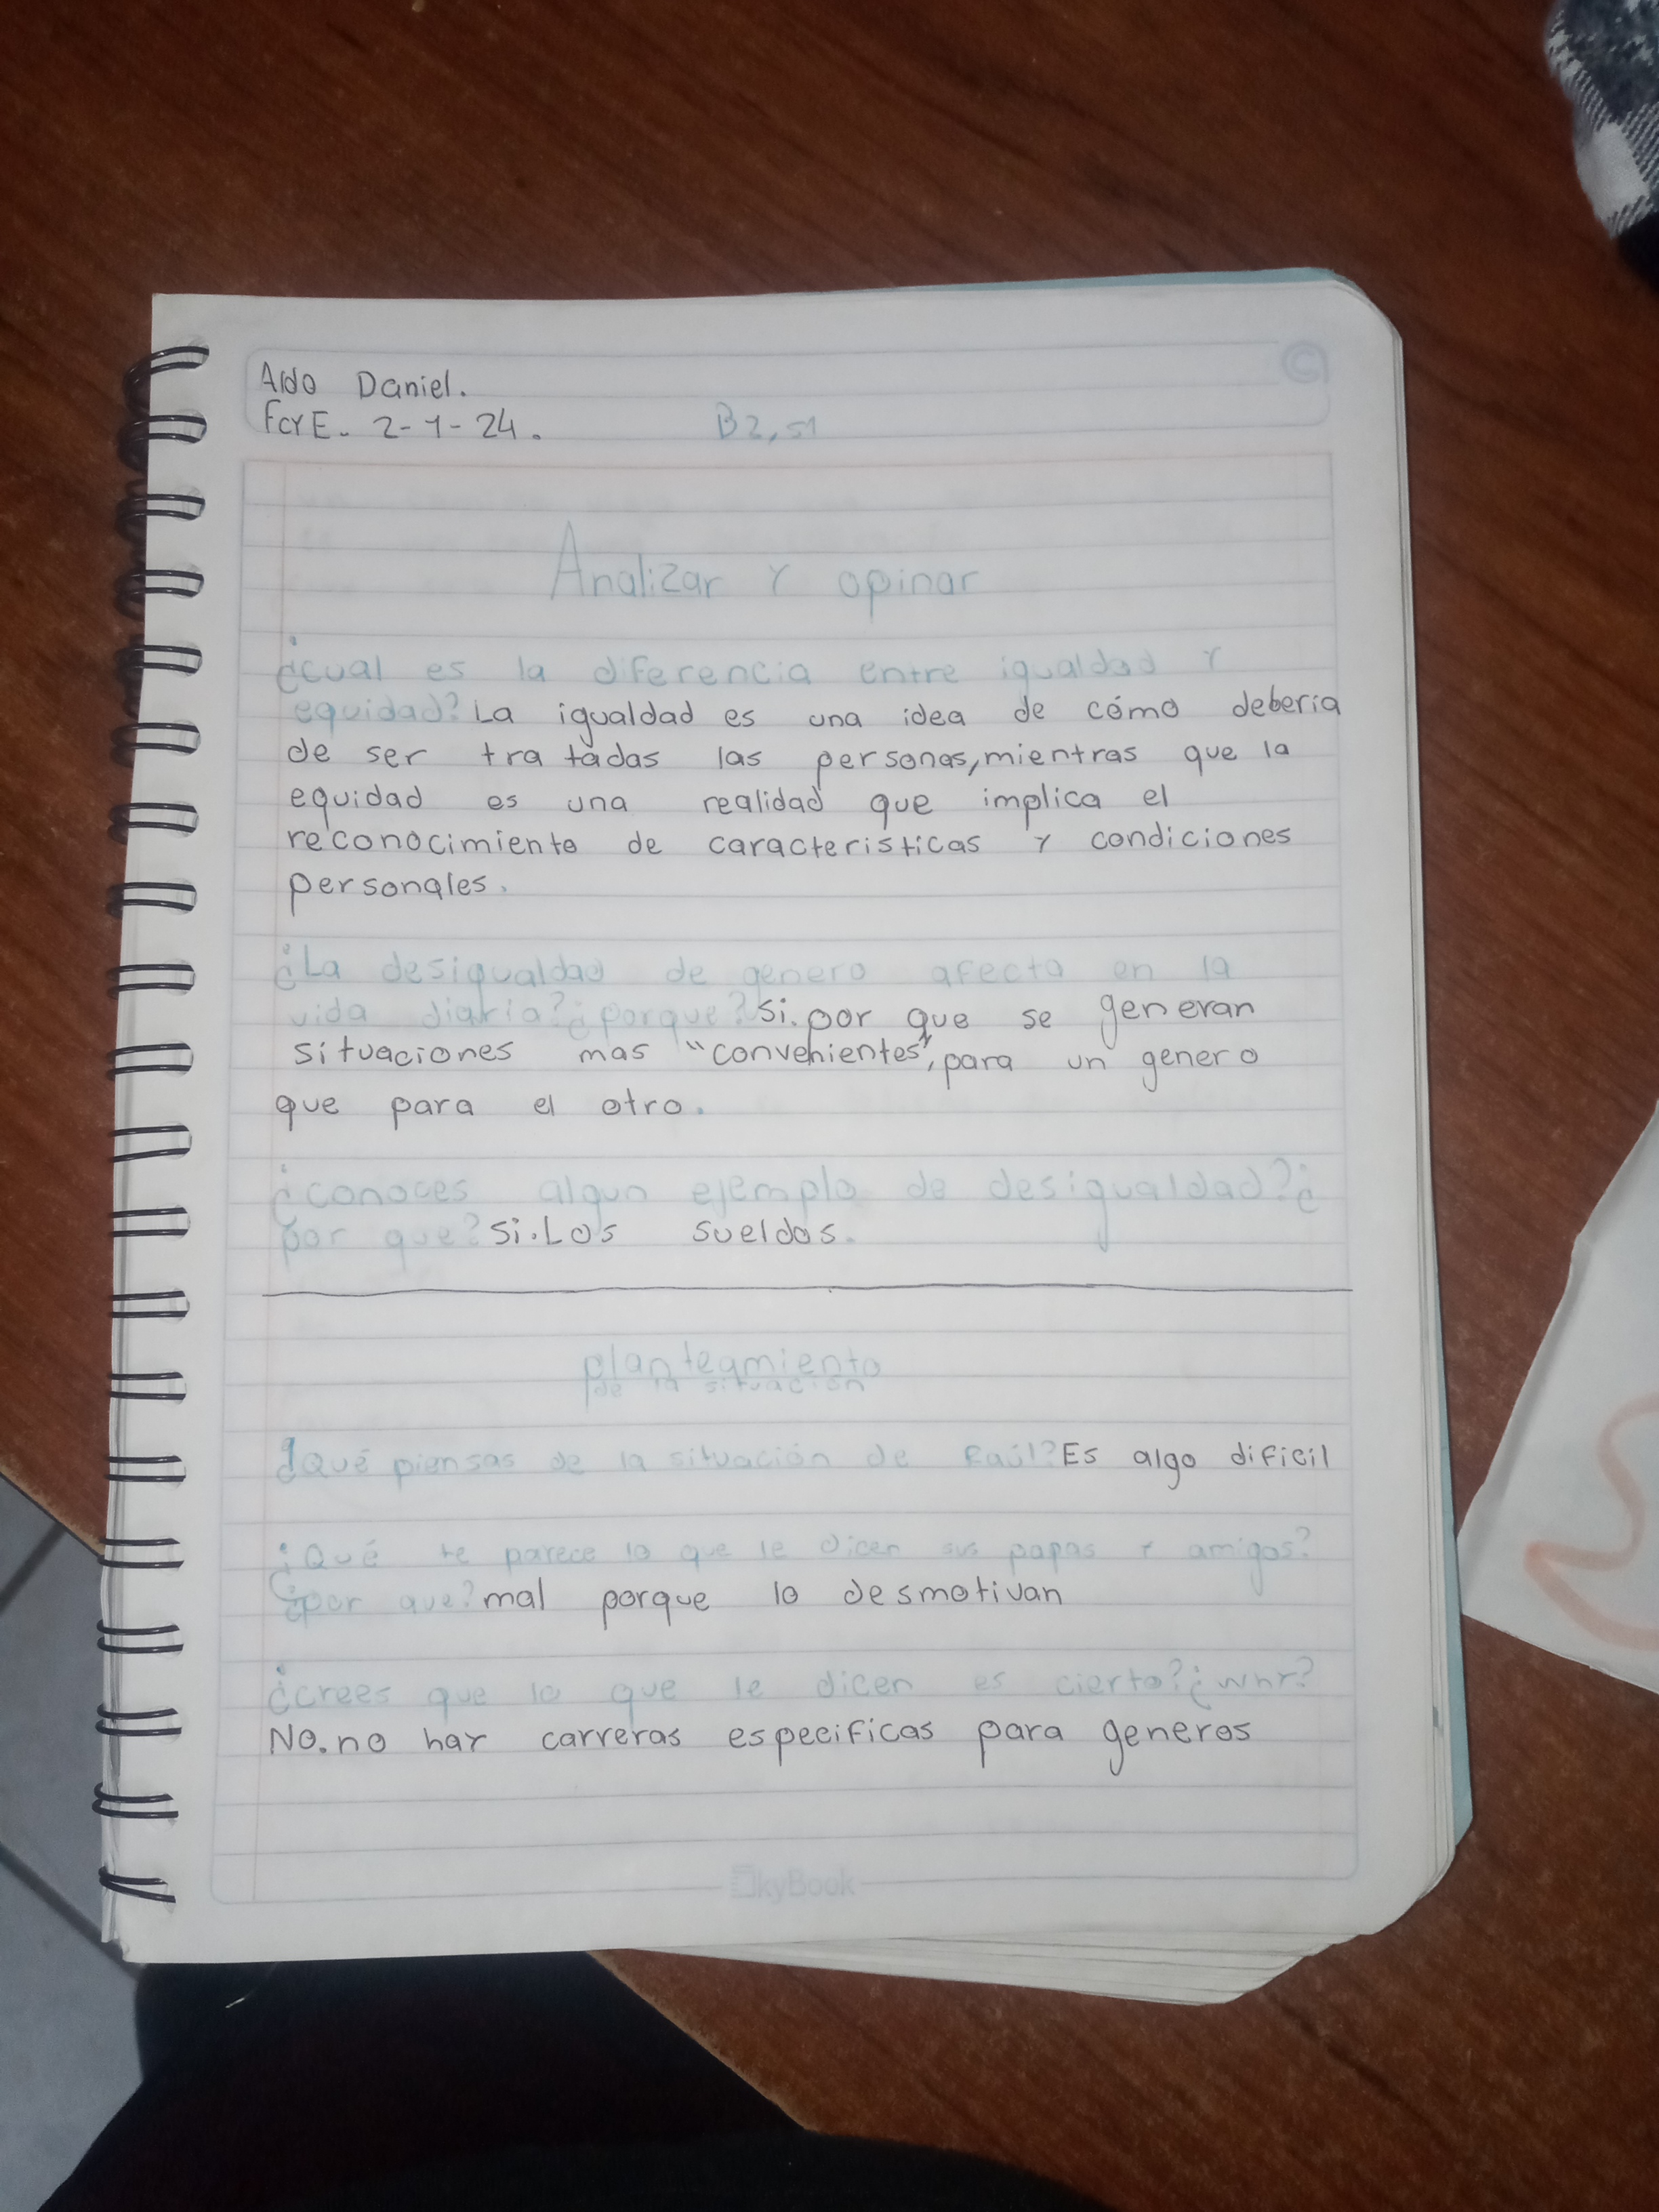 Aldo Daniel.
FcyE. 2-1-24. B2, S1
Analizar y opinar
¿cual es la diferencia entre igualdad y
equidad? La igualdad es una idea de cómo deberia
de ser tratadas las personas, mientras que la
equidad es una realidad que implica el
reconocimiento de caracteristicas y condiciones
personales.
¿La desigualdad de genero afecta en la
vida diaria? ¿porque? Si. por que se generan
situaciones mas "convenientes", para un genero
que para el otro.
¿conoces algun ejemplo de desigualdad? ¿
por que? Si. Los sueldos.
planteamiento
de la situación
¿Qué piensas de la situación de Raúl? Es algo dificil
¿Qué te parece lo que le dicen sus papas y amigos?
¿por que? mal porque lo desmotivan
¿crees que lo que le dicen es cierto? ¿why?
No. no hay carreras especificas para generos
SkyBook